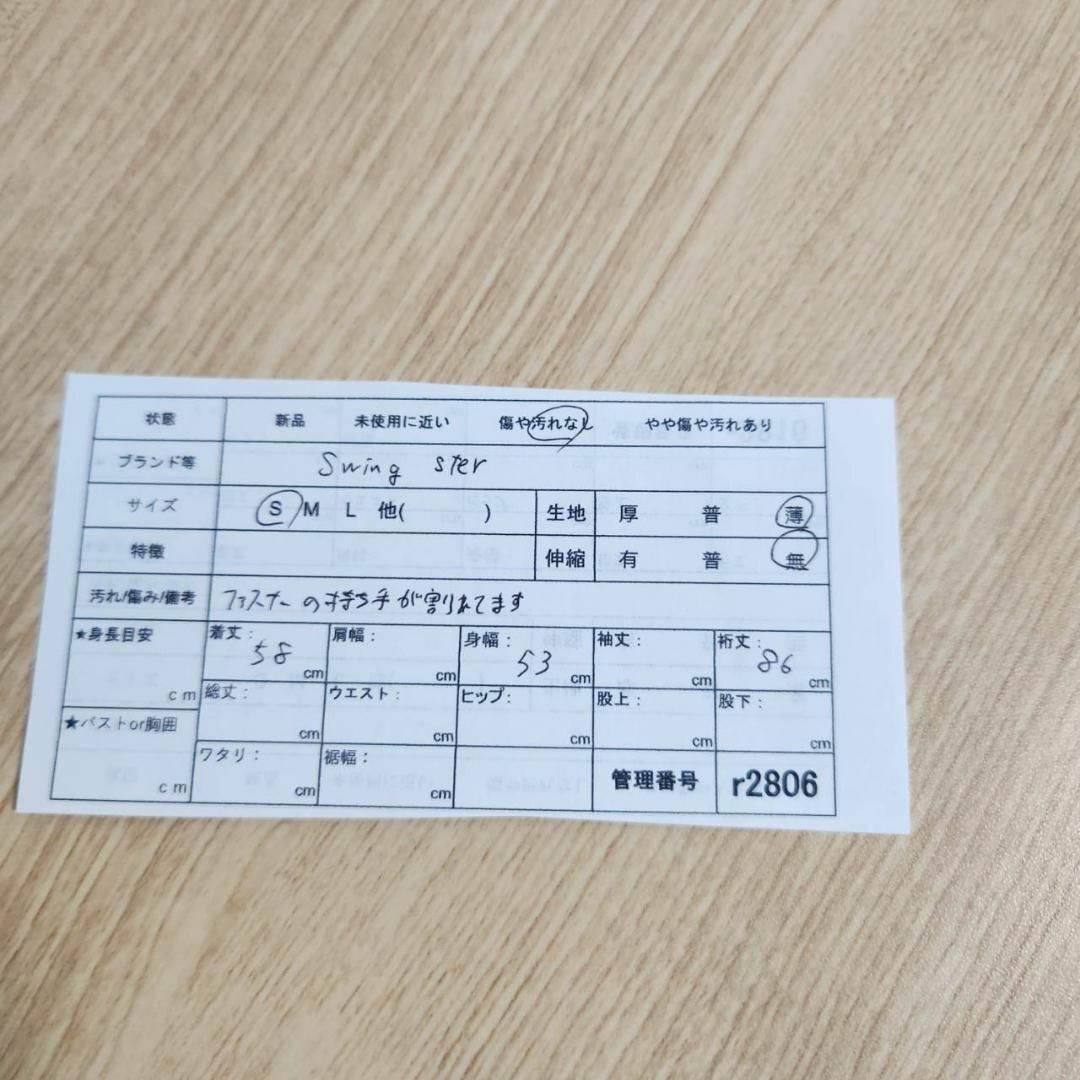 状態 新品 未使用に近い 傷や汚れなし やや傷や汚れあり
ブランド等 Swing ster
サイズ S M L 他( ) 生地 厚 普 薄
特徴 伸縮 有 普 無
汚れ/傷み/備考 ファスナーの持ち手が割れてます
★身長目安 cm 着丈: 58 cm 肩幅: cm 身幅: 53 cm 袖丈: cm 裄丈: 86 cm
総丈: cm ウエスト: cm ヒップ: cm 股上: cm 股下: cm
★バストor胸囲 cm ワタリ: cm 裾幅: cm 管理番号 r2806